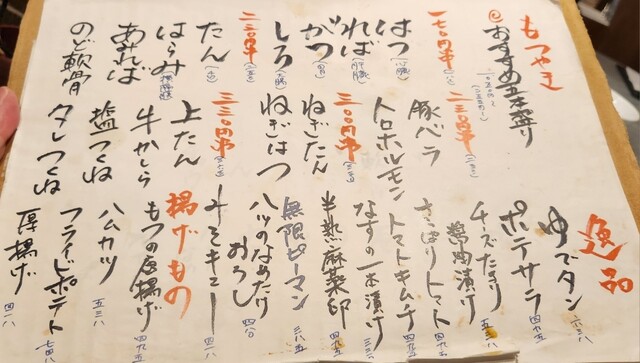 もつやき
おすすめ五本盛り
一七〇円串
はつ(心臓)
れば(肝臓)
がつ(胃)
しろ(腸)
二二〇円串
たん(舌)
はらみ(横隔膜)
あみれば
のど軟骨
二三〇円串
豚バラ
トロホルモン
三一〇円串
ねぎたん
ねぎはつ
三三〇円串
上たん
牛かしら
塩つくね
タレつくね
逸品
ゆでタン 六三八
ポテサラ 四九五
チーズたまり醤油漬け 五三八
さっぱりトマト 四九五
トマトキムチ
なすの一本漬け
半熟麻薬卵 四九五
無限ピーマン 三八五
八ツのなめたけおろし 四一〇
みそキュー 四一八
揚げもの
もつの唐揚げ 四九五
ハムカツ 五三八
フライドポテト 七四八
厚揚げ 四一八